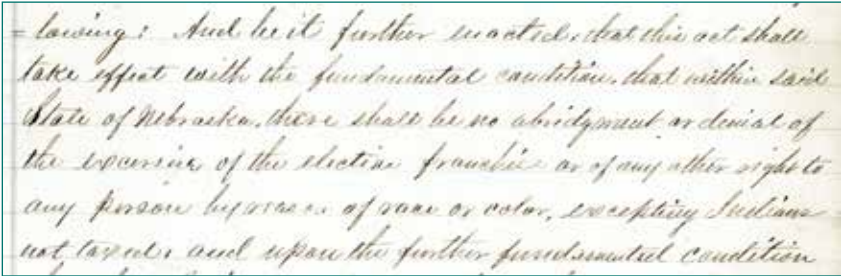 = lowing: And be it further enacted, that this act shall
take effect with the fundamental condition, that within said
State of Nebraska, there shall be no abridgment or denial of
the exercise of the elective franchise or of any other right to
any person by reason of race or color, excepting Indians
not taxed; and upon the further fundamental condition